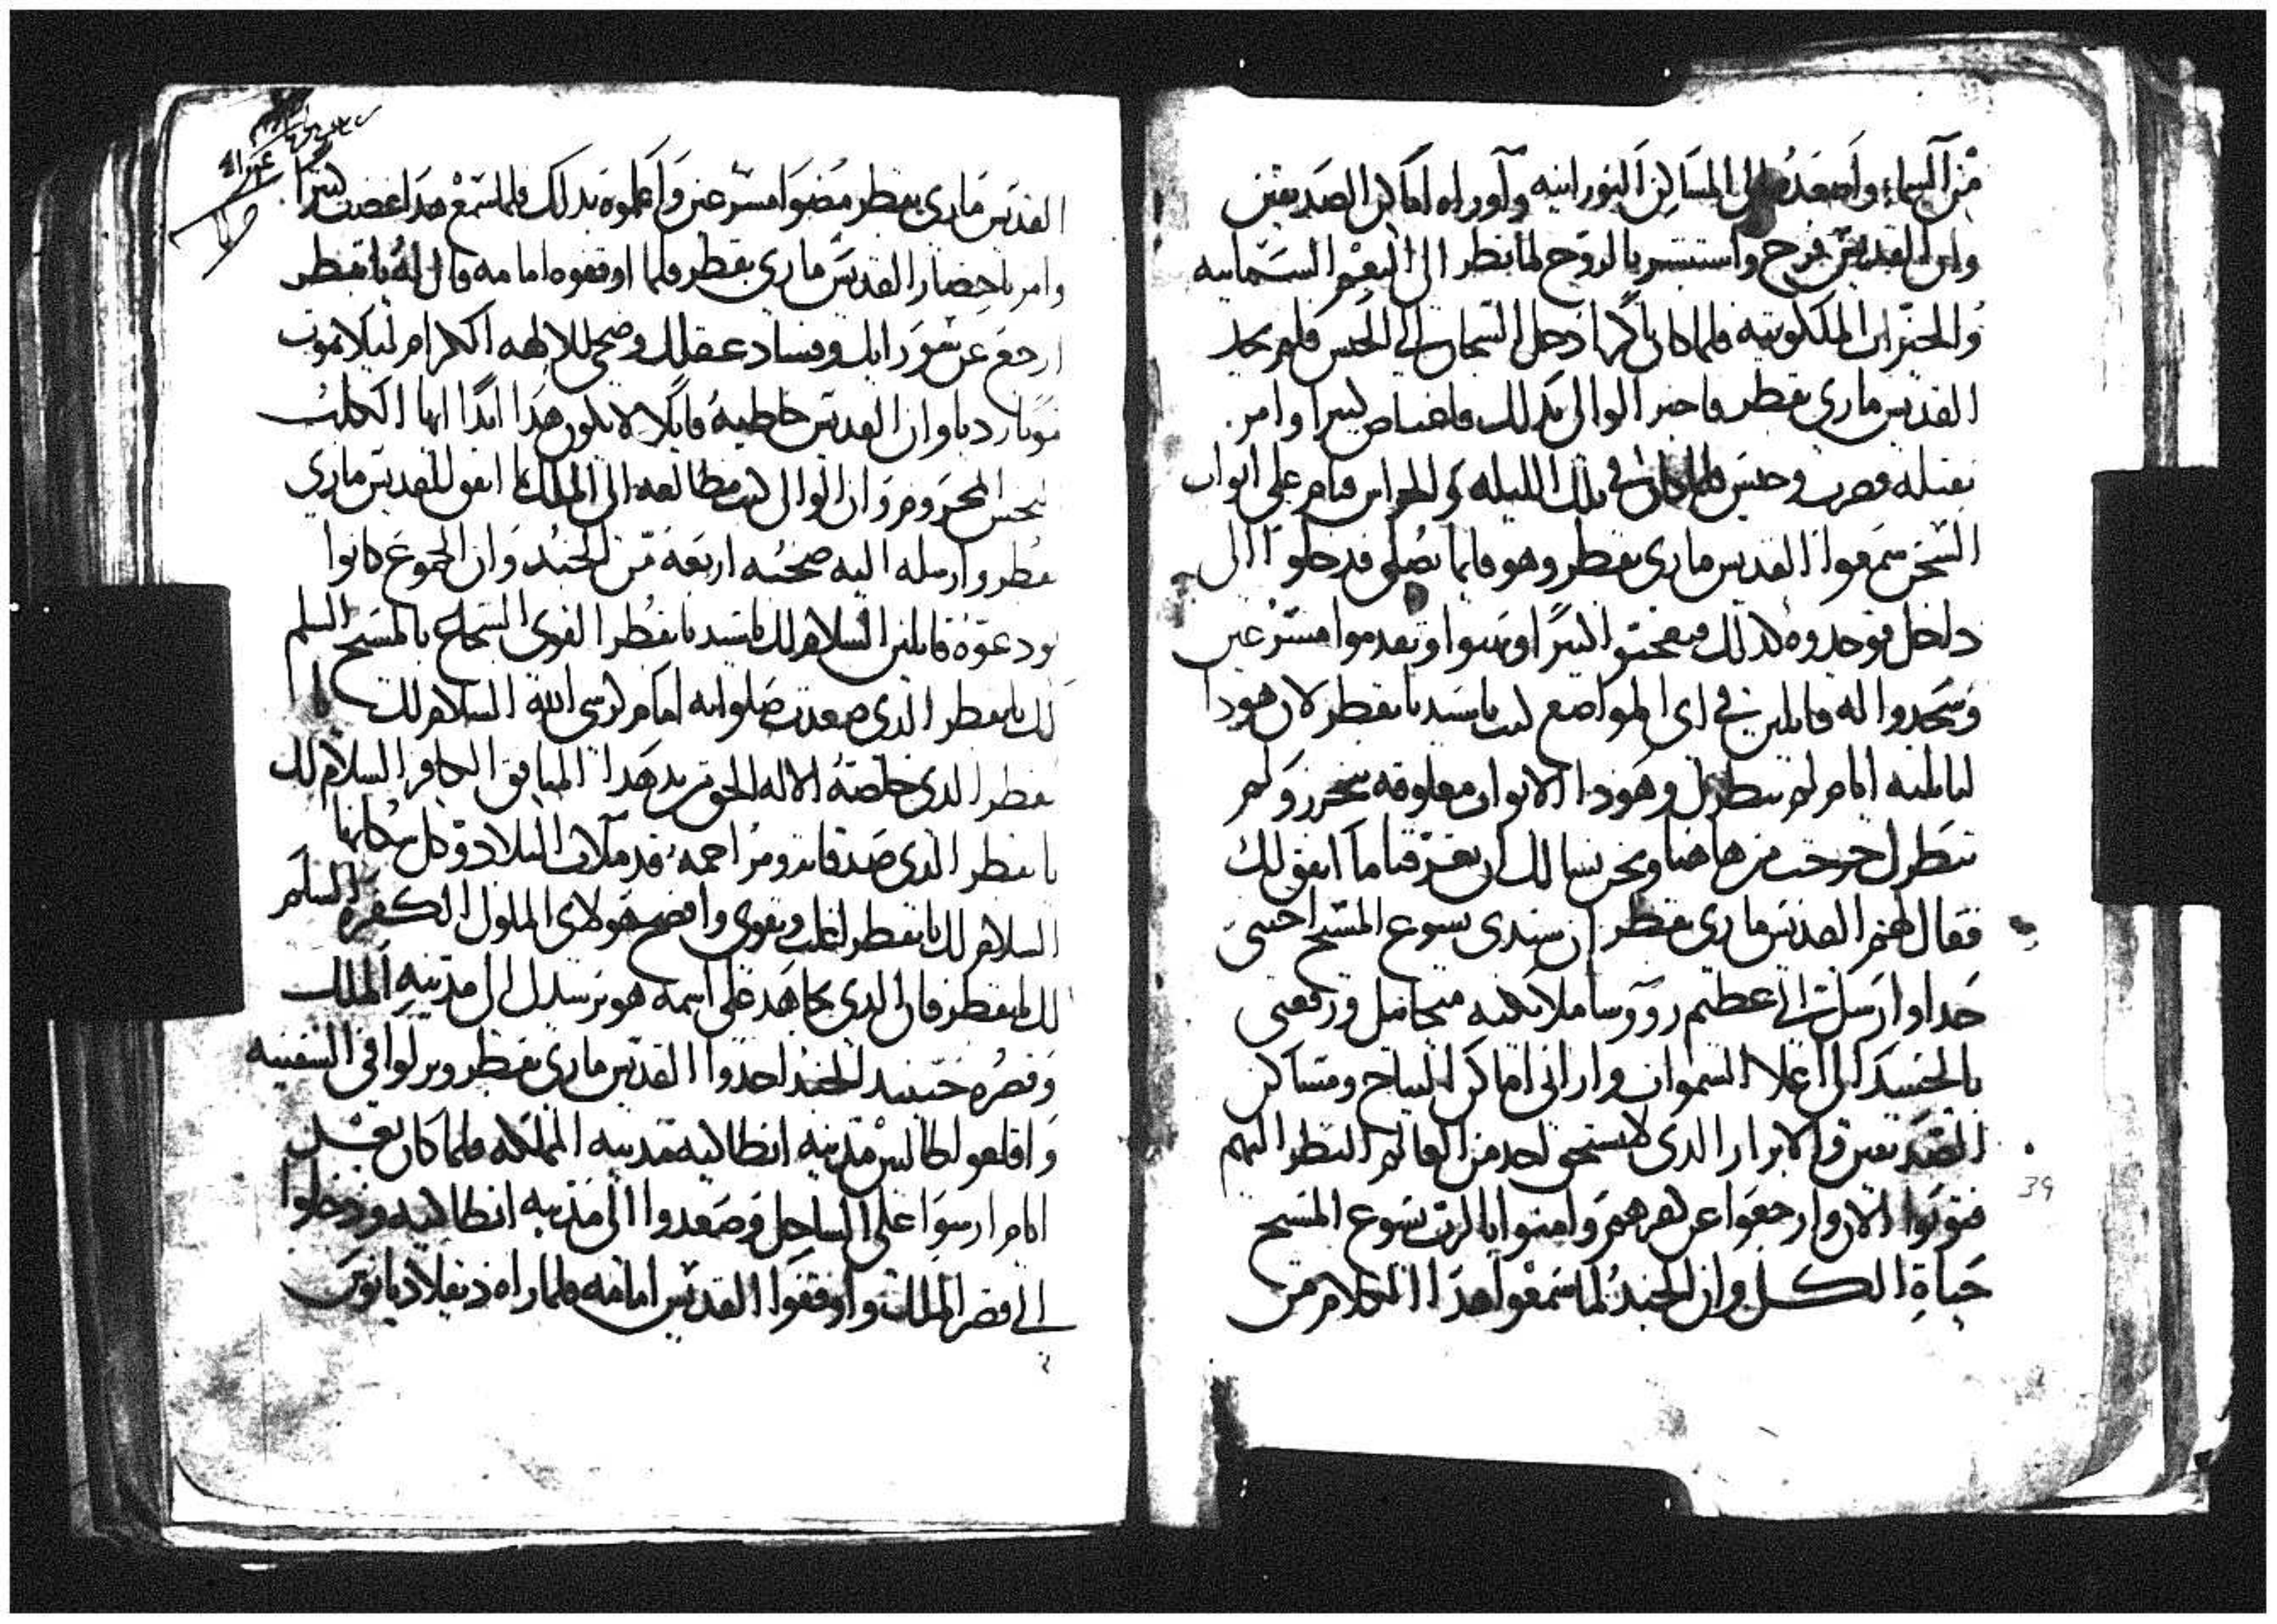 من السماء واصعده الى المساكن النورانيه وآوراه اماكن الصديقين
وان القديس فرح واستبشر بالروح لما نظر الى النعم السمائيه
والخيرات الملكوتيه فلما كان باكرا دخل السجان الى الحبس فلم يجد
القديس ماري بقطر فاخبر الوالي بذلك فاغتاض كثيرا وامر
بقتله فضرب وحبس فلما كان في تلك الليله والحراس قيام على ابواب
السجن سمعوا القديس ماري بقطر وهو قايما يصلي فدخلوا الى
داخل فوجدوه كذلك فتعجبوا كثيرا وتقدموا مسرعين
وسجدوا له قايلين في اي المواضع كنت يا سيد يا بقطر لان هوذا
لنا ثلثه ايام لم ننظرك وهوذا الابواب مغلوقه بتحرز ولم
ننظرك خرجت من هاهنا ونحن نسالك ان تعرفنا ما اتفق لك
فقال لهم القديس ماري بقطر ان سيدي يسوع المسيح احبني
جدا وارسل الي عظيم روؤسا ملايكته ميخاييل ورفعني
بالجسد الى اعلا السموات واراني اماكن النياح ومساكن
الصديقين والابرار الذي لا يستحق احد من العالم النظر اليهم
فتوبوا الان وارجعوا عن كفركم وامنوا بالرب يسوع المسيح
حياة الكل وان الجند لما سمعوا هذا الكلام من
القديس ماري بقطر مضوا مسرعين واعلموه بذلك فلما سمع هذا غضب كثيرا
وامر باحضار القديس ماري بقطر فلما اوقفوه امامه قال له يا بقطر
ارجع عن سو رايك وفساد عقلك وضحي للالهه الكرام ليلا تموت
موتا رديا وان القديس خاطبه قايلا لا يكون هذا ابدا ايها الكلب
النجس المحروم وان الوالي كتب مطالعه الى الملك بما اتفق للقديس ماري
بقطر وارسله اليه صحبته اربعه من الجند وان الجموع كانوا
يودعوه قايلين السلام لك يا سيد يا بقطر القوي الشجاع بالمسيح السلم
لك يا بقطر الذي صعدت صلواته امام كرسي الله السلام لك
بقطر الذي خلصه الاله الحق من يد هذا المنافق الكافر السلام لك
يا بقطر الذي صدقاته ومراحمه قد ملات البلاد وكل سكانها
السلام لك يا بقطر لتغلب وتقوى وافضح هولاي الملوك الكفره السلم
لك يا بقطر فان الذي تجاهد على اسمه هو يرسلك الى مدينه الملك
وقصره حينيد الجند اخدوا القديس ماري بقطر ونزلوا في السفينه
واقلعو طالبين مدينه انطاكيه مدينه المملكه فلما كان بعد
ايام ارسوا على الساحل وصعدوا الى مدينه انطاكيه ودخلوا
الى قصر الملك واوقفوا القديس امامه فلما راه دقلاديانوس
39